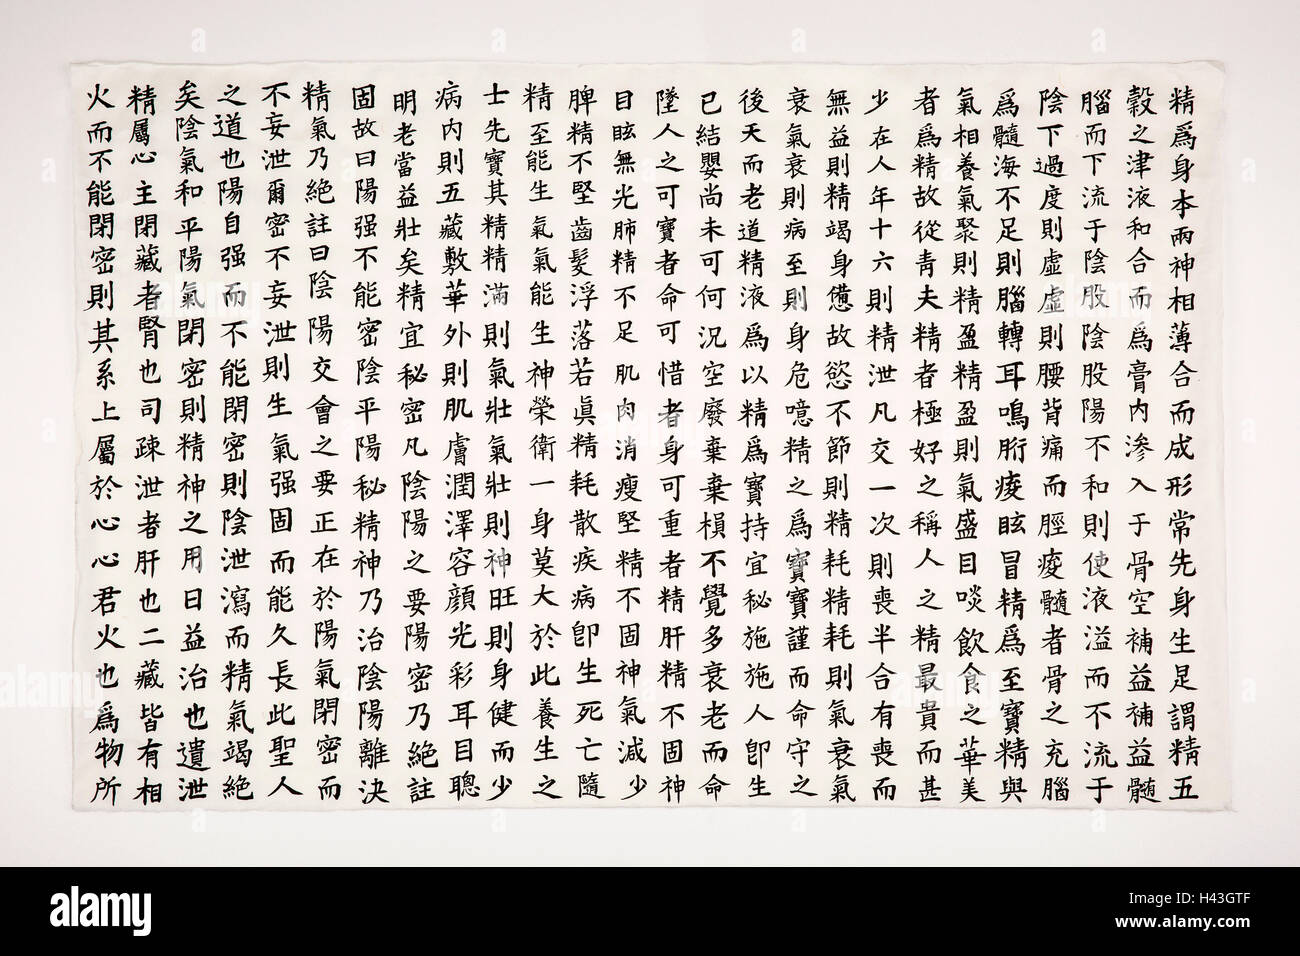 精爲身本兩神相薄合而成形常先身生足謂精五
穀之津液和合而爲膏內滲入于骨空補益補益髓
腦而下流于陰股陰股陽不和則使液溢而不流于
陰下過度則虛虛則腰背痛而脛痠髓者骨之充腦
爲髓海不足則腦轉耳鳴胻痠眩冒精爲至寶精與
氣相養氣聚則精盈精盈則氣盛目啖飲食之華美
者爲精故從靑夫精者極好之稱人之精最貴而甚
少在人年十六則精泄凡交一次則喪半合有喪而
無益則精竭身憊故慾不節則精耗精耗則氣衰氣
衰氣衰則病至則身危噫精之爲寶寶謹而命守之
後天而老道精液爲以精爲寶持宜秘施施人卽生
已結嬰尚未可何況空廢棄棄損不覺多衰老而命
墜人之可寶者命可惜者身可重者精肝精不固神
目眩無光肺精不足肌肉消瘦堅精不固神氣減少
脾精不堅齒髮浮落若眞精耗散疾病卽生死亡隨
精至能生氣氣能生神榮衛一身莫大於此養生之
士先寶其精精滿則氣壯氣壯則神旺則身健而少
病內則五藏敷華外則肌膚潤澤容顏光彩耳目聰
明老當益壯矣精宜秘密凡陰陽之要陽密乃絶註
固故曰陽强不能密陰平陽秘精神乃治陰陽離決
精氣乃絶註曰陰陽交會之要正在於陽氣閉密而
不妄泄爾密不妄泄則生氣强固而能久長此聖人
之道也陽自强而不能閉密則陰泄瀉而精氣竭絶
矣陰氣和平陽氣閉密則精神之用日益治也遺泄
精屬心主閉藏者腎也司疎泄者肝也二藏皆有相
火而不能閉密則其系上屬於心心君火也爲物所
alamy
Image ID: H43GTF
www.alamy.com